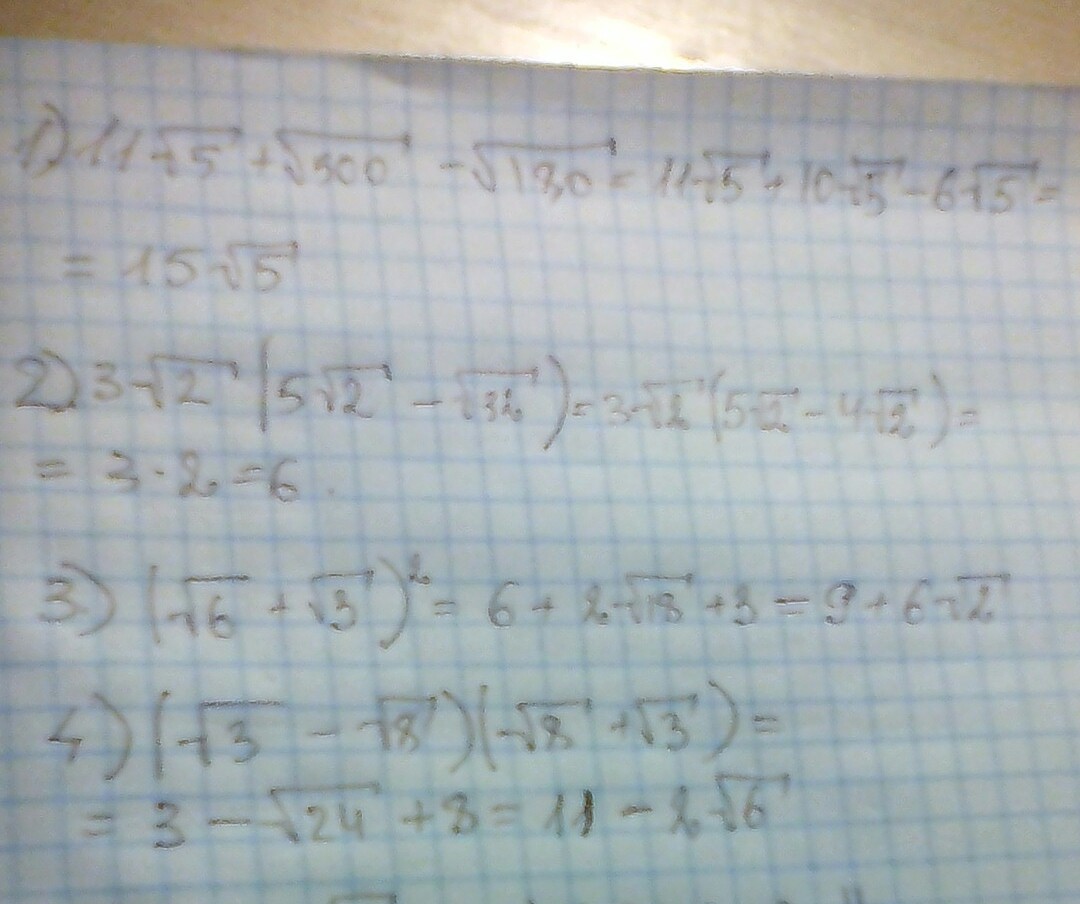 1) 11√5 + √500 - √180 = 11√5 + 10√5 - 6√5 =
= 15√5
2) 3√2 (5√2 - √32) = 3√2 (5√2 - 4√2) =
= 3 · 2 = 6.
3) (√6 + √3)² = 6 + 2√18 + 3 = 9 + 6√2
4) (√3 - √8)(√8 + √3) =
= 3 - √24 + 8 = 11 - 2√6